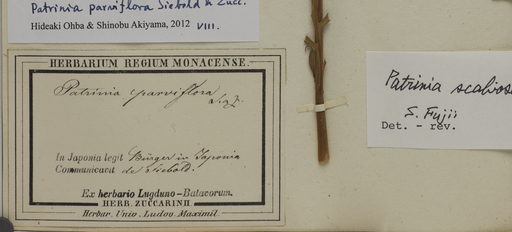 Patrinia parviflora Siebold & Zucc.
Hideaki Ohba & Shinobu Akiyama, 2012 VIII.
HERBARIUM REGIUM MONACENSE.
Patrinia parviflora
S. & Z.
In Japonia legit Bürger in Japonia
Communicavit de Siebold.
Ex herbario Lugduno-Batavorum.
HERB. ZUCCARINII
Herbar. Univ. Ludov. Maximil.
Patrinia scabios
S. Fujii
Det. - rev.